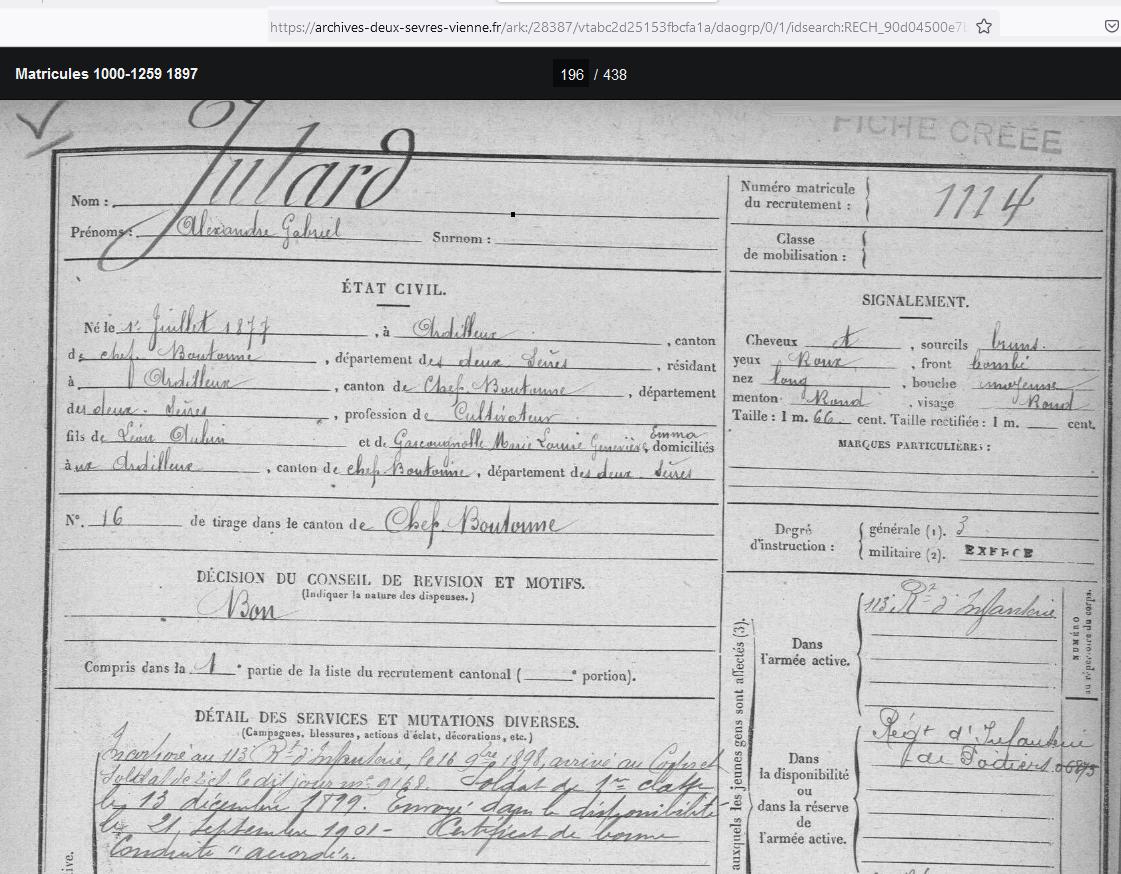 https://archives-deux-sevres-vienne.fr/ark:/28387/vtabc2d25153fbcfa1a/daogrp/0/1/idsearch:RECH_90d04500e7
Matricules 1000-1259 1897
196 / 438
FICHE CRÉÉE
Nom : Jutard
Prénoms : Alexandre Gabriel Surnom :
Numéro matricule du recrutement : 1114
Classe de mobilisation :
ÉTAT CIVIL.
Né le 1er Juillet 1877, à Ardilleux, canton
de chef Boutonne, département des deux Sèvres, résidant
à Ardilleux, canton de Chef Boutonne, département
des deux. Sèvres, profession de Cultivateur
fils de Léon Aubin et de Gascougnolle Marie Louise Geneviève Emma domiciliés
à aux Ardilleux, canton de chef Boutonne, département des deux Sèvres
N°. 16 de tirage dans le canton de Chef Boutonne
DÉCISION DU CONSEIL DE REVISION ET MOTIFS.
(Indiquer la nature des dispenses.)
Bon
Compris dans la 1e partie de la liste du recrutement cantonal ( e portion).
DÉTAIL DES SERVICES ET MUTATIONS DIVERSES.
(Campagnes, blessures, actions d'éclat, décorations, etc.)
Incorporé au 113e Rt d'Infanterie, le 16 9bre 1898, arrivé au Corps et
Soldat de 2e cl. le dit jour no 9168. Soldat de 1re classe
le 13 décembre 1899. Envoyé dans la disponibilité
le 21, septembre 1901 - Certificat de bonne
Conduite "accordé".
SIGNALEMENT.
Cheveux et, sourcils bruns.
yeux Roux, front bombé
nez long, bouche moyenne
menton Rond, visage Rond
Taille : 1 m. 66 cent. Taille rectifiée : 1 m. cent.
MARQUES PARTICULIÈRES :
Degré d'instruction : générale (1). 3
militaire (2). EXERCE
auxquels les jeunes gens sont affectés (3).
Dans l'armée active. 113e Rt d'Infanterie
NUMÉRO
au répertoire du corps.
Dans la disponibilité ou dans la réserve de l'armée active.
Régt d'Infanterie
de Poitiers
ive.